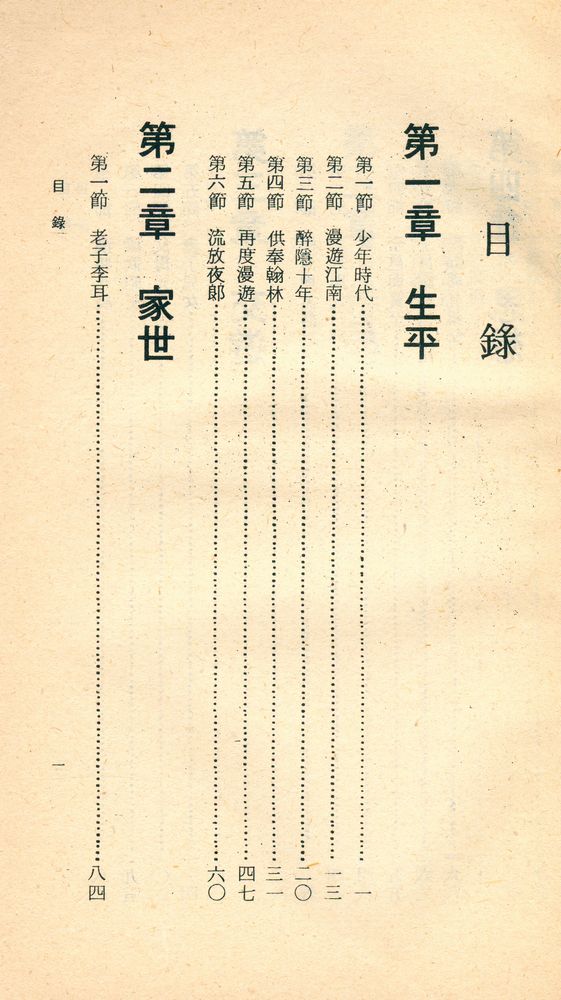 目錄
第一章 生平
第一節 少年時代……一
第二節 漫遊江南……一三
第三節 醉隱十年……二〇
第四節 供奉翰林……三一
第五節 再度漫遊……四七
第六節 流放夜郎……六〇
第二章 家世
第一節 老子李耳……八四
目錄 一